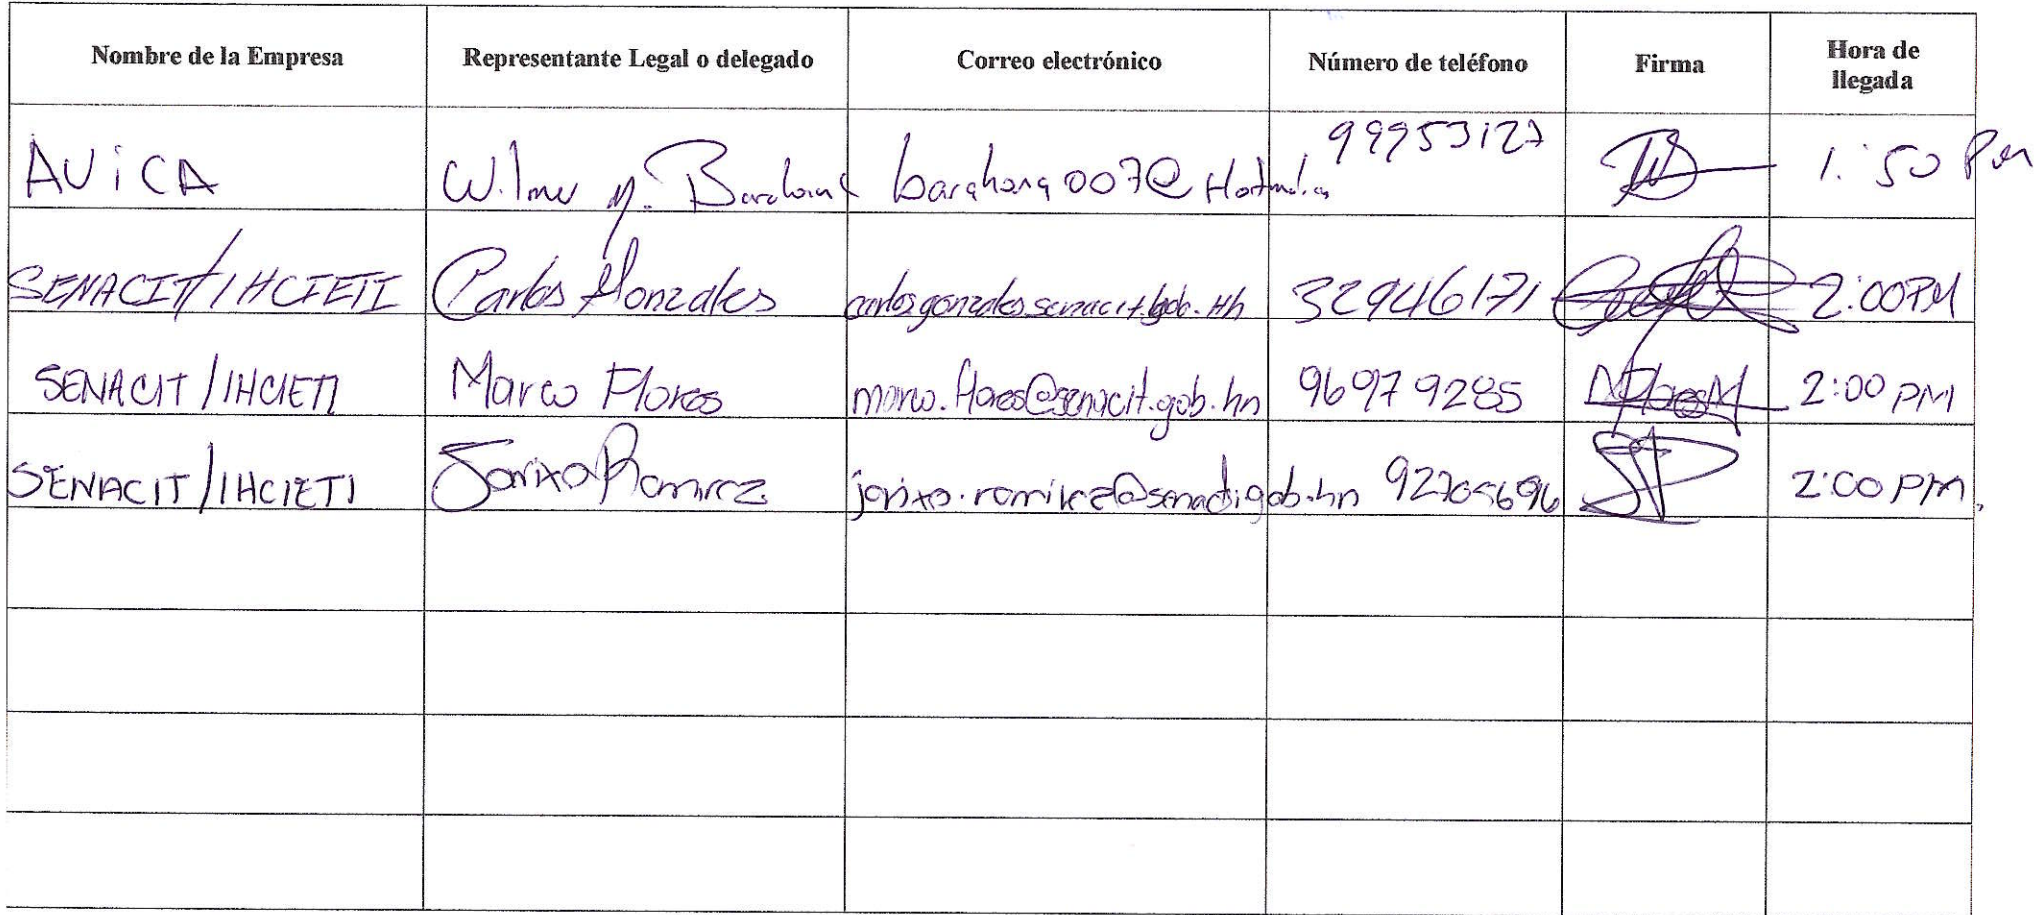 Nombre de la Empresa Representante Legal o delegado Correo electrónico Número de teléfono Firma Hora de llegada
AVICA Wilmer y. Barahona barahona007@Hotmail.com 99953127 1:50 Pm
SENACIT/IHCIETI Carlos Gonzales carlosgonzales.senacit.gob.Hh 32946171 2:00PM
SENACIT/IHCIETI Marco Flores marco.flores@senacit.gob.hn 96979285 MFloresM 2:00 PM
SENACIT/IHCIETI Ramirez 92705696 2:00 PM.